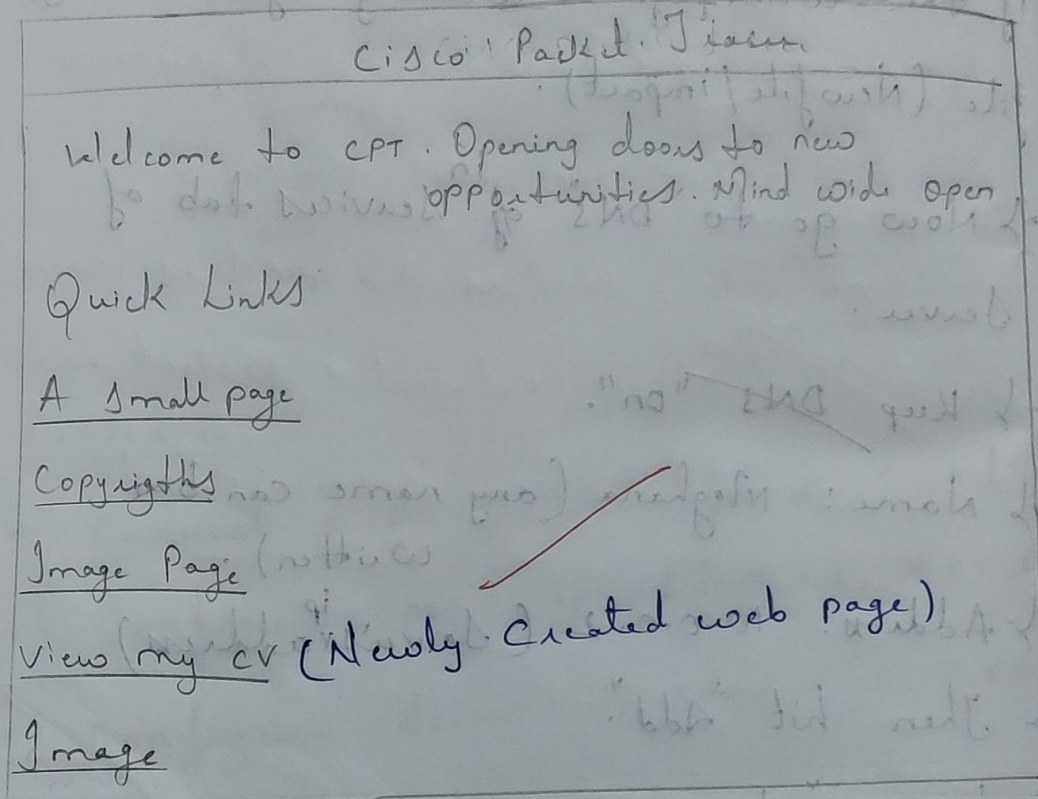 Cisco Packet Tracer
Welcome to CPT. Opening doors to new
opportunities. Mind wide open
Quick Links
A Small page
Copyrigths
Image Page
View my CV (Newly Created web page)
Image